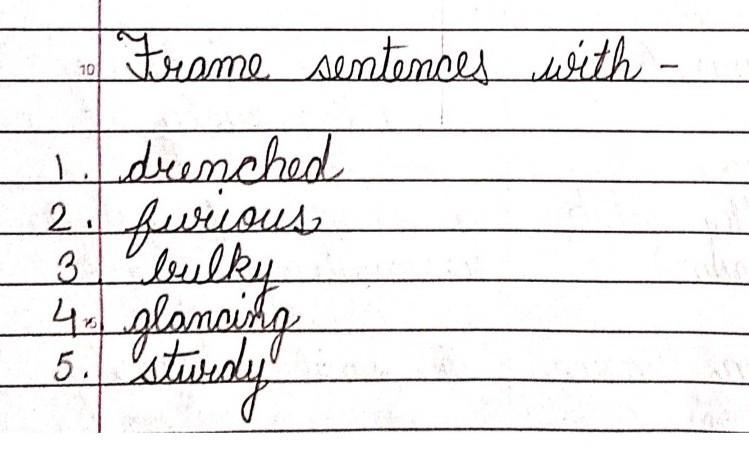 Frame sentences with -
1. drenched
2. furious
3 bulky
4. glancing
5. sturdy